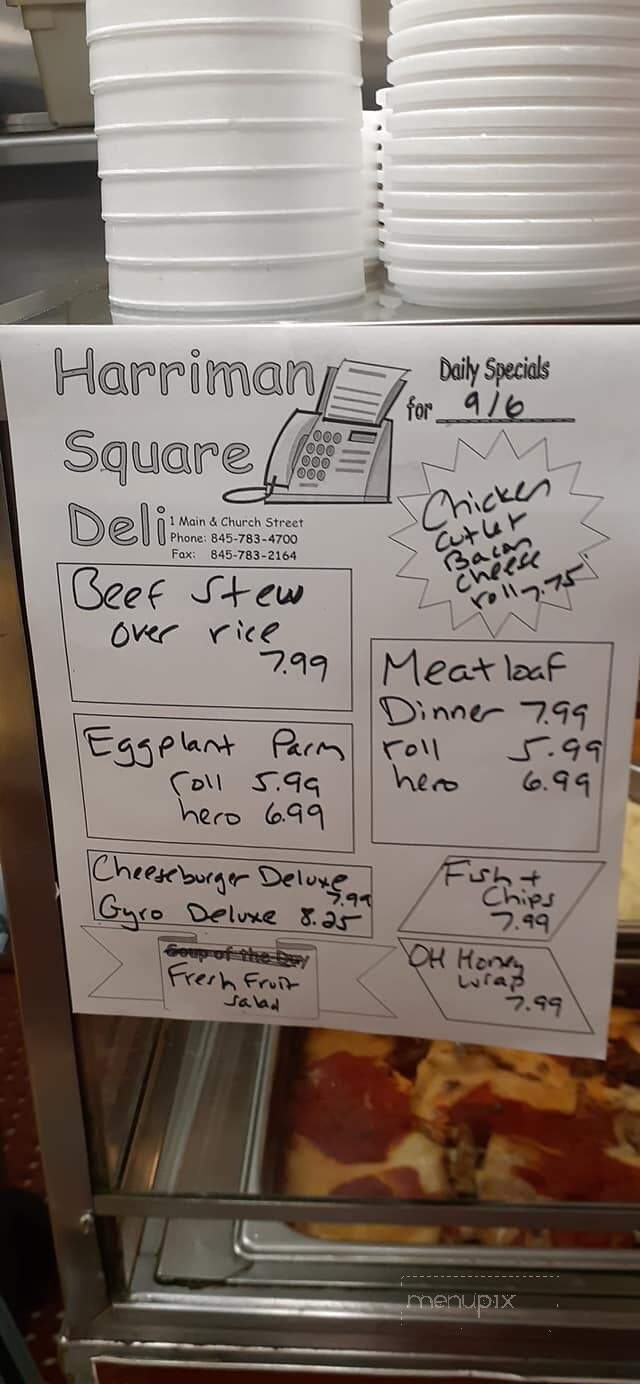 Harriman
Square
Deli
1 Main & Church Street
Phone: 845-783-4700
Fax: 845-783-2164
Daily Specials
for 9/6
Chicken
Cutlet
Bacon
Cheese
roll 7.75
Beef Stew
over rice
7.99
Meatloaf
Dinner 7.99
roll 5.99
hero 6.99
Eggplant Parm
roll 5.99
hero 6.99
Cheeseburger Deluxe
7.99
Gyro Deluxe 8.25
Fish +
Chips
7.99
Soup of the Day
Fresh Fruit
Salad
OH Honey
Wrap
7.99
menupix